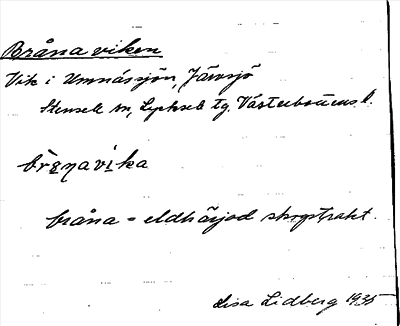 Bråna viken
Vik i Umnässjön, Järvsjö
Stensele sn, Lycksele tg. Västerbottens l.
bråna = eldhärjad skogstrakt.
Lisa Lidberg 1935